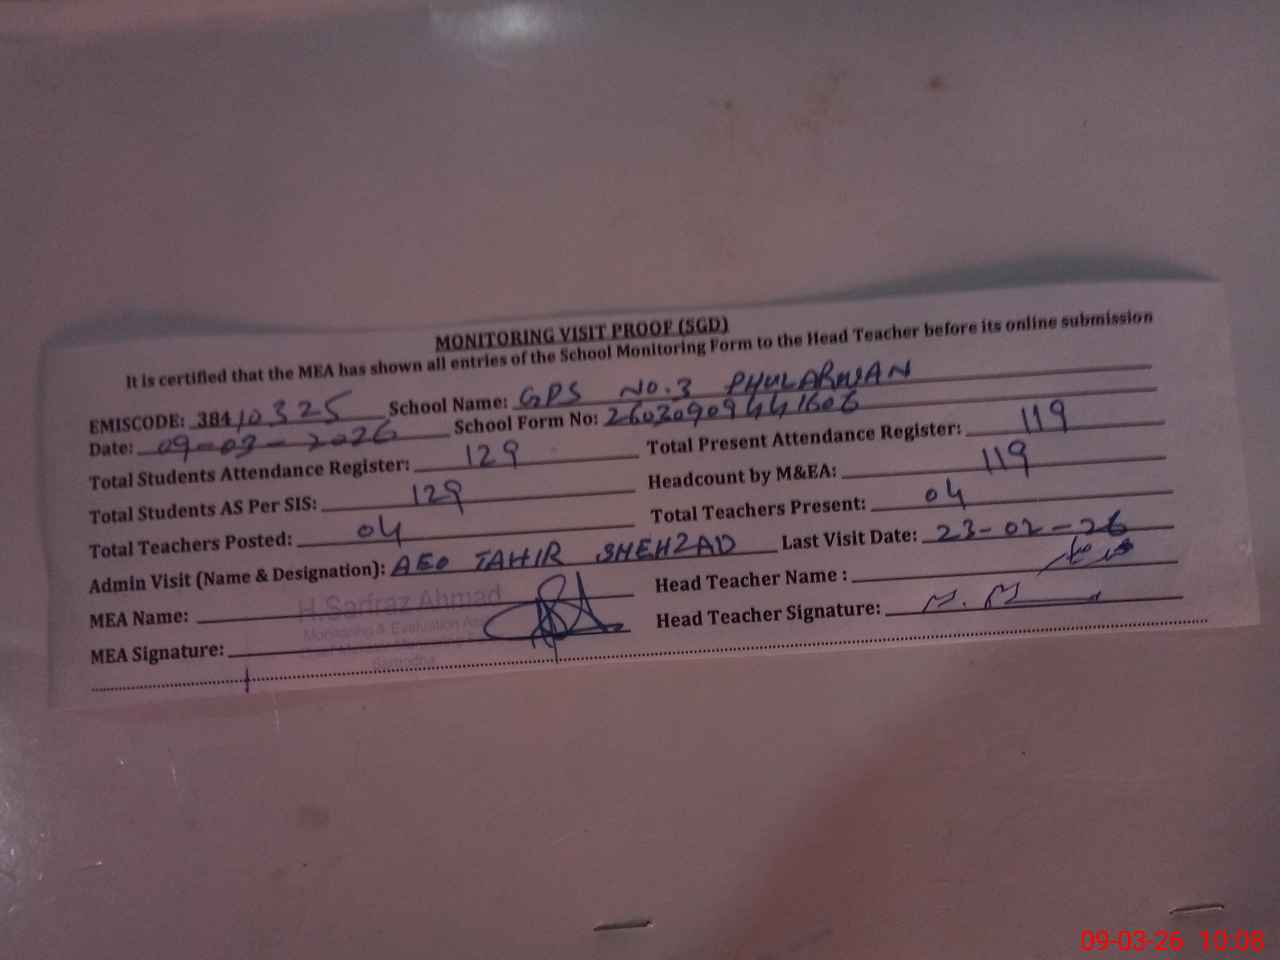 MONITORING VISIT PROOF (SGD)
It is certified that the MEA has shown all entries of the School Monitoring Form to the Head Teacher before its online submission
EMISCODE: 38410325 School Name: GPS NO.3 PHULARWAN
Date: 09-03-2026 School Form No: 26030909441606
Total Students Attendance Register: 129 Total Present Attendance Register: 119
Total Students AS Per SIS: 129 Headcount by M&EA: 119
Total Teachers Posted: 04 Total Teachers Present: 04
Admin Visit (Name & Designation): AEO TAHIR SHEHZAD Last Visit Date: 23-02-26
MEA Name: H.Sarfraz Ahmad Head Teacher Name :
Monitoring & Evaluation
MEA Signature: Head Teacher Signature:
Sargodha
09-03-26 10:08